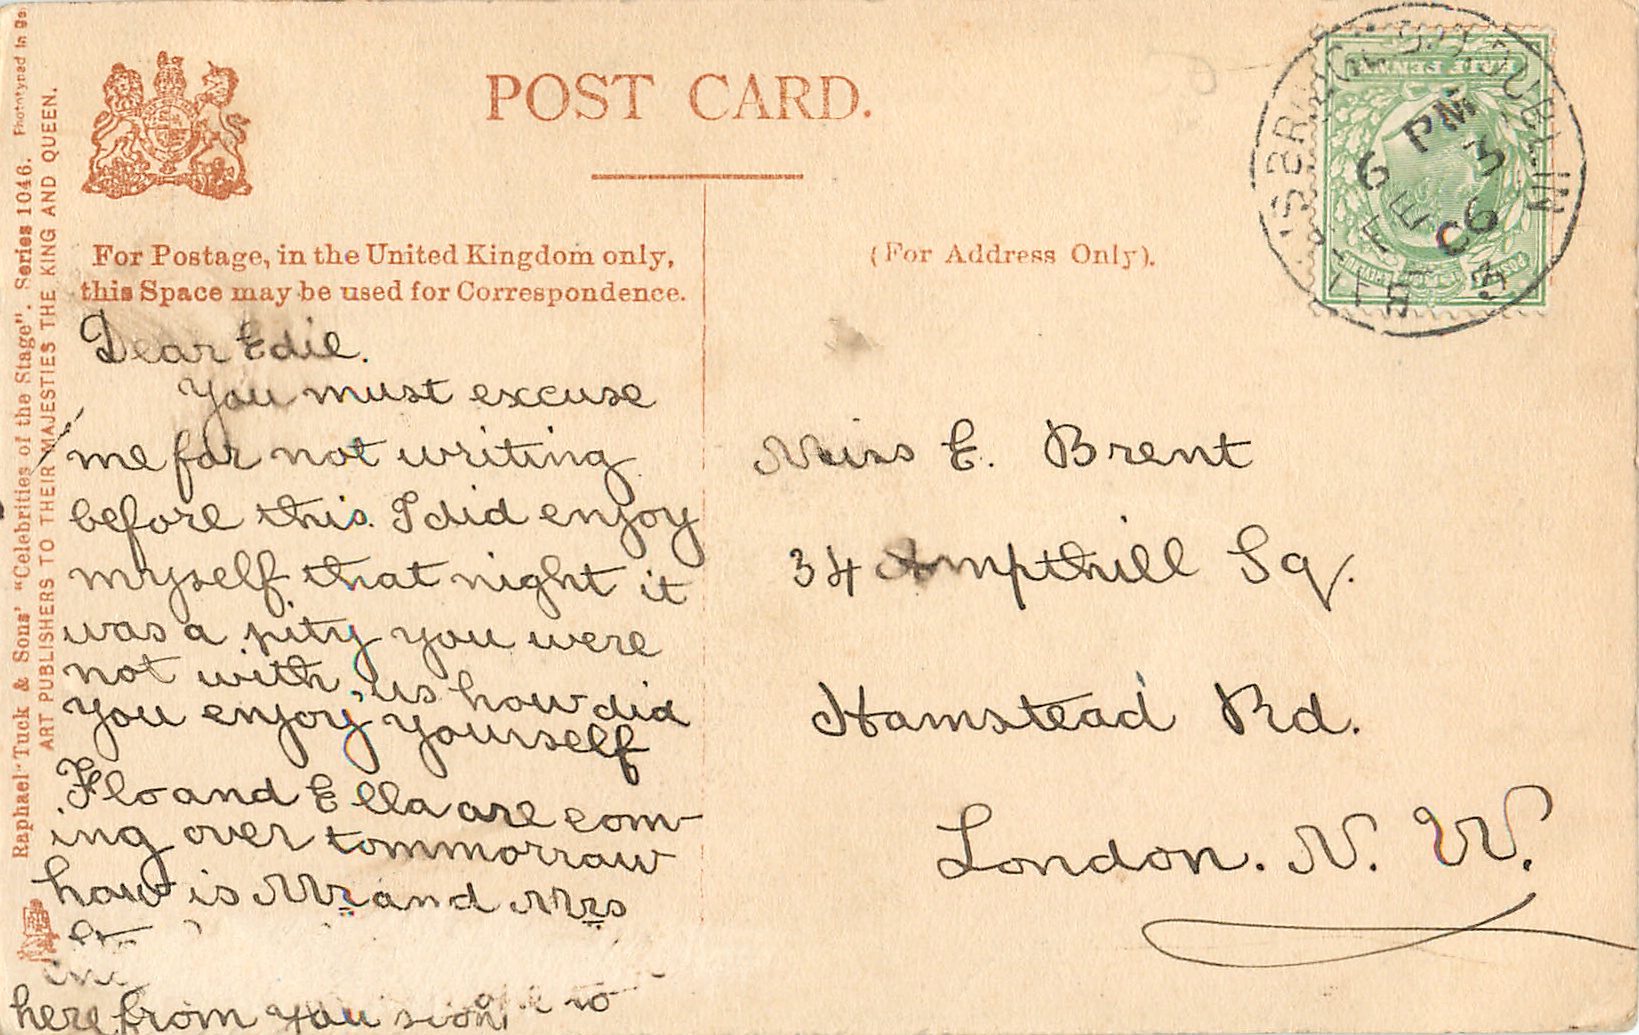 POST CARD.
For Postage, in the United Kingdom only,
this Space may be used for Correspondence.
(For Address Only).
Raphael Tuck & Sons' "Celebrities of the Stage". Series 1046. Phototyped in
ART PUBLISHERS TO THEIR MAJESTIES THE KING AND QUEEN.
HALF PENNY
DUBLIN
6 PM
3
FE
06
Dear Edie.
You must excuse
me for not writing
before this. I did enjoy
myself that night it
was a pity you were
not with us how did
you enjoy yourself
Flo and Ella are com-
ing over tommorraw
how is Mr and Mrs
here from you
Miss E. Brent
34 Ampthill Sq.
Hamstead Rd.
London. N. W.